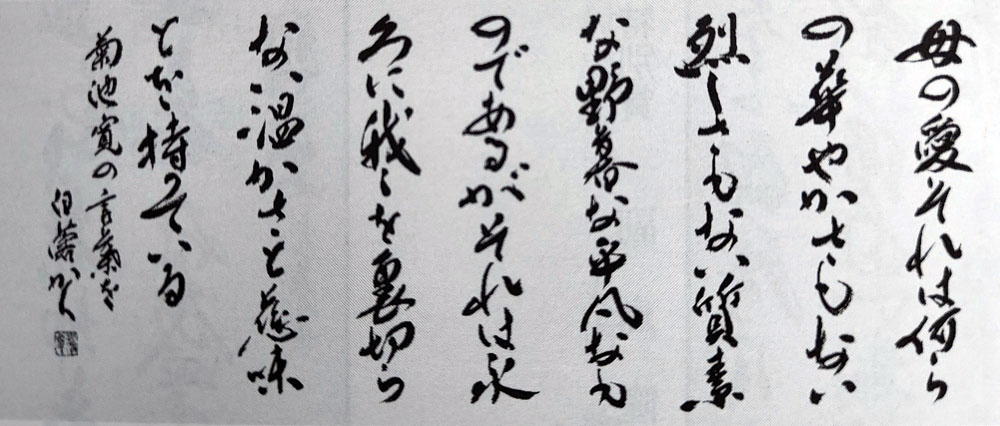 母の愛それは何ら
の華やかさもない
烈しさもない質素
な野暮な平凡なも
のであるがそれは永
久に我々を裏切ら
ない温かさと慈味
とを持っている
菊池寛の言葉を